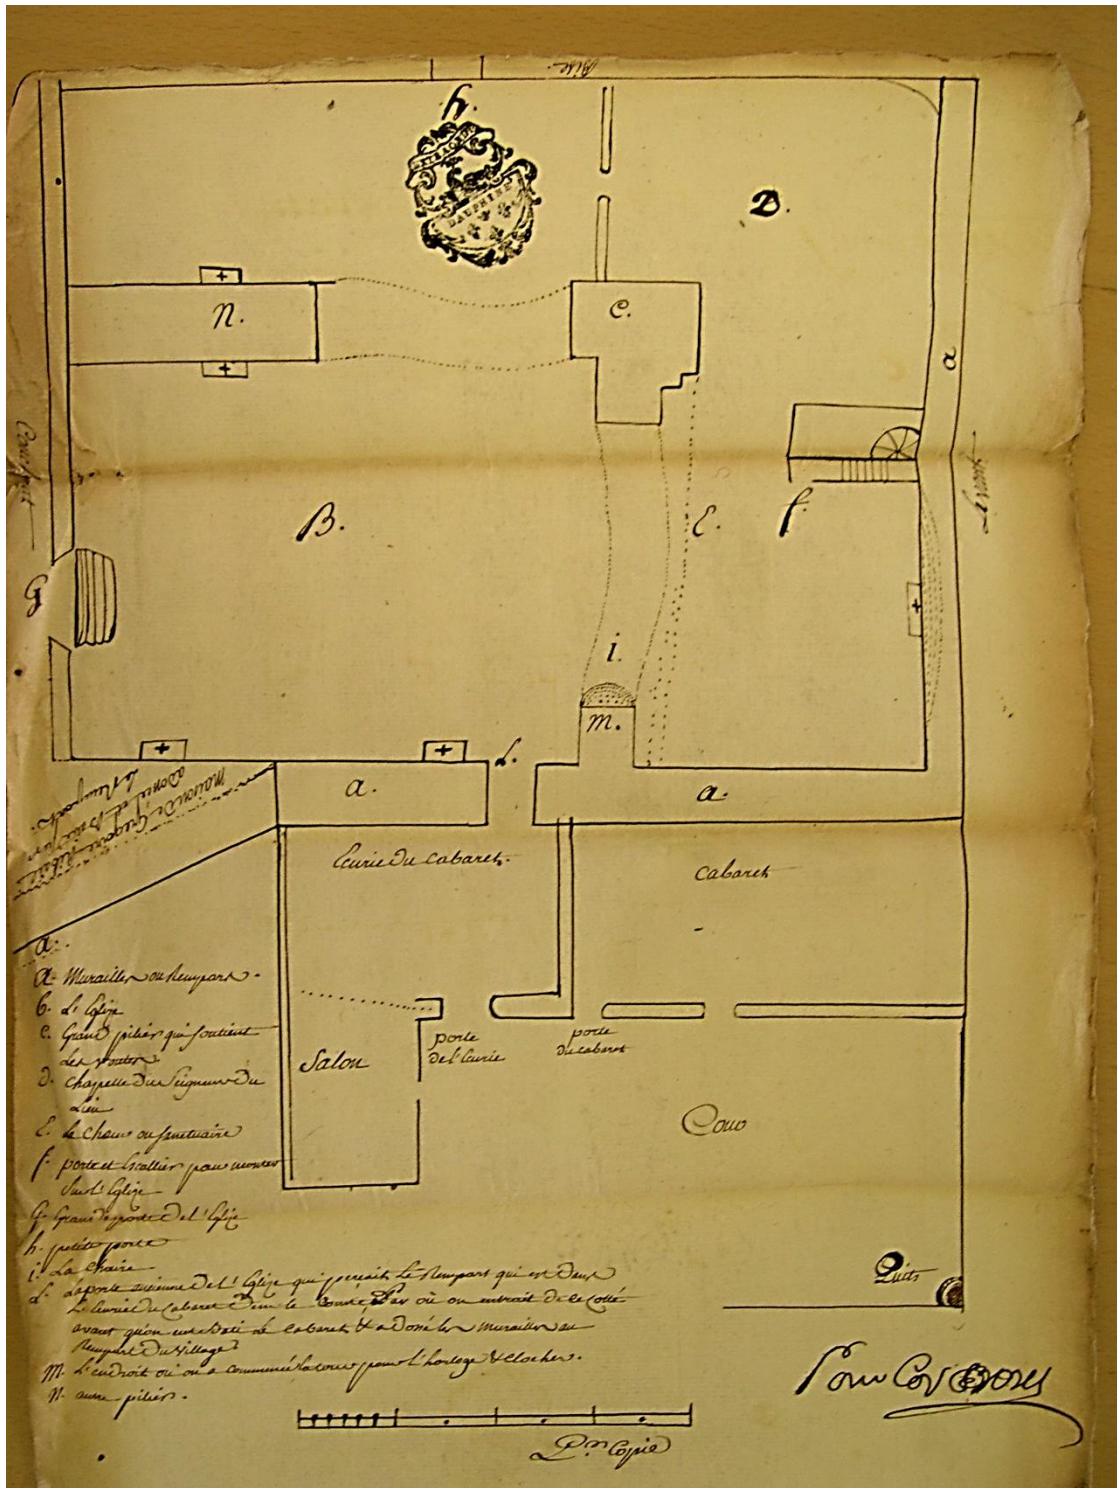 Bise
h.
DAUPHINE
D.
N.
C.
a
Couchant
Levant
B.
E.
f.
G
i.
m.
L.
a.
a.
maison de
adossé et
Le Rempart.
Ecurie Du Cabaret.
Cabaret
porte
de l'Ecurie
porte
du cabaret
Salon
Cour
Puits
a.
a. Murailles ou Rempart.
b. L'Eglize
c. Grand pilier qui soutient
Les voutes
d. Chapelle Du Seigneur Du
Lieu
E. Le Chœur ou Sanctuaire
f. porte et Escallier pour monter
Sur L'Eglize
G. Grande porte De l'Eglize
h. petite porte
i. La Chaire
L. La porte ancienne De l'Eglize qui perçait Le Rempart qui est Dans
L'Ecurie Du Cabaret par où on entrait De ce Cotté
avant qu'on eut Bati Le Cabaret & adossé les Murailles au
Rempart Du Village
M. L'endroit où on a commencé la tour pour l'horloge & Clocher.
N. autre pilier.
Pour Copie
Pour